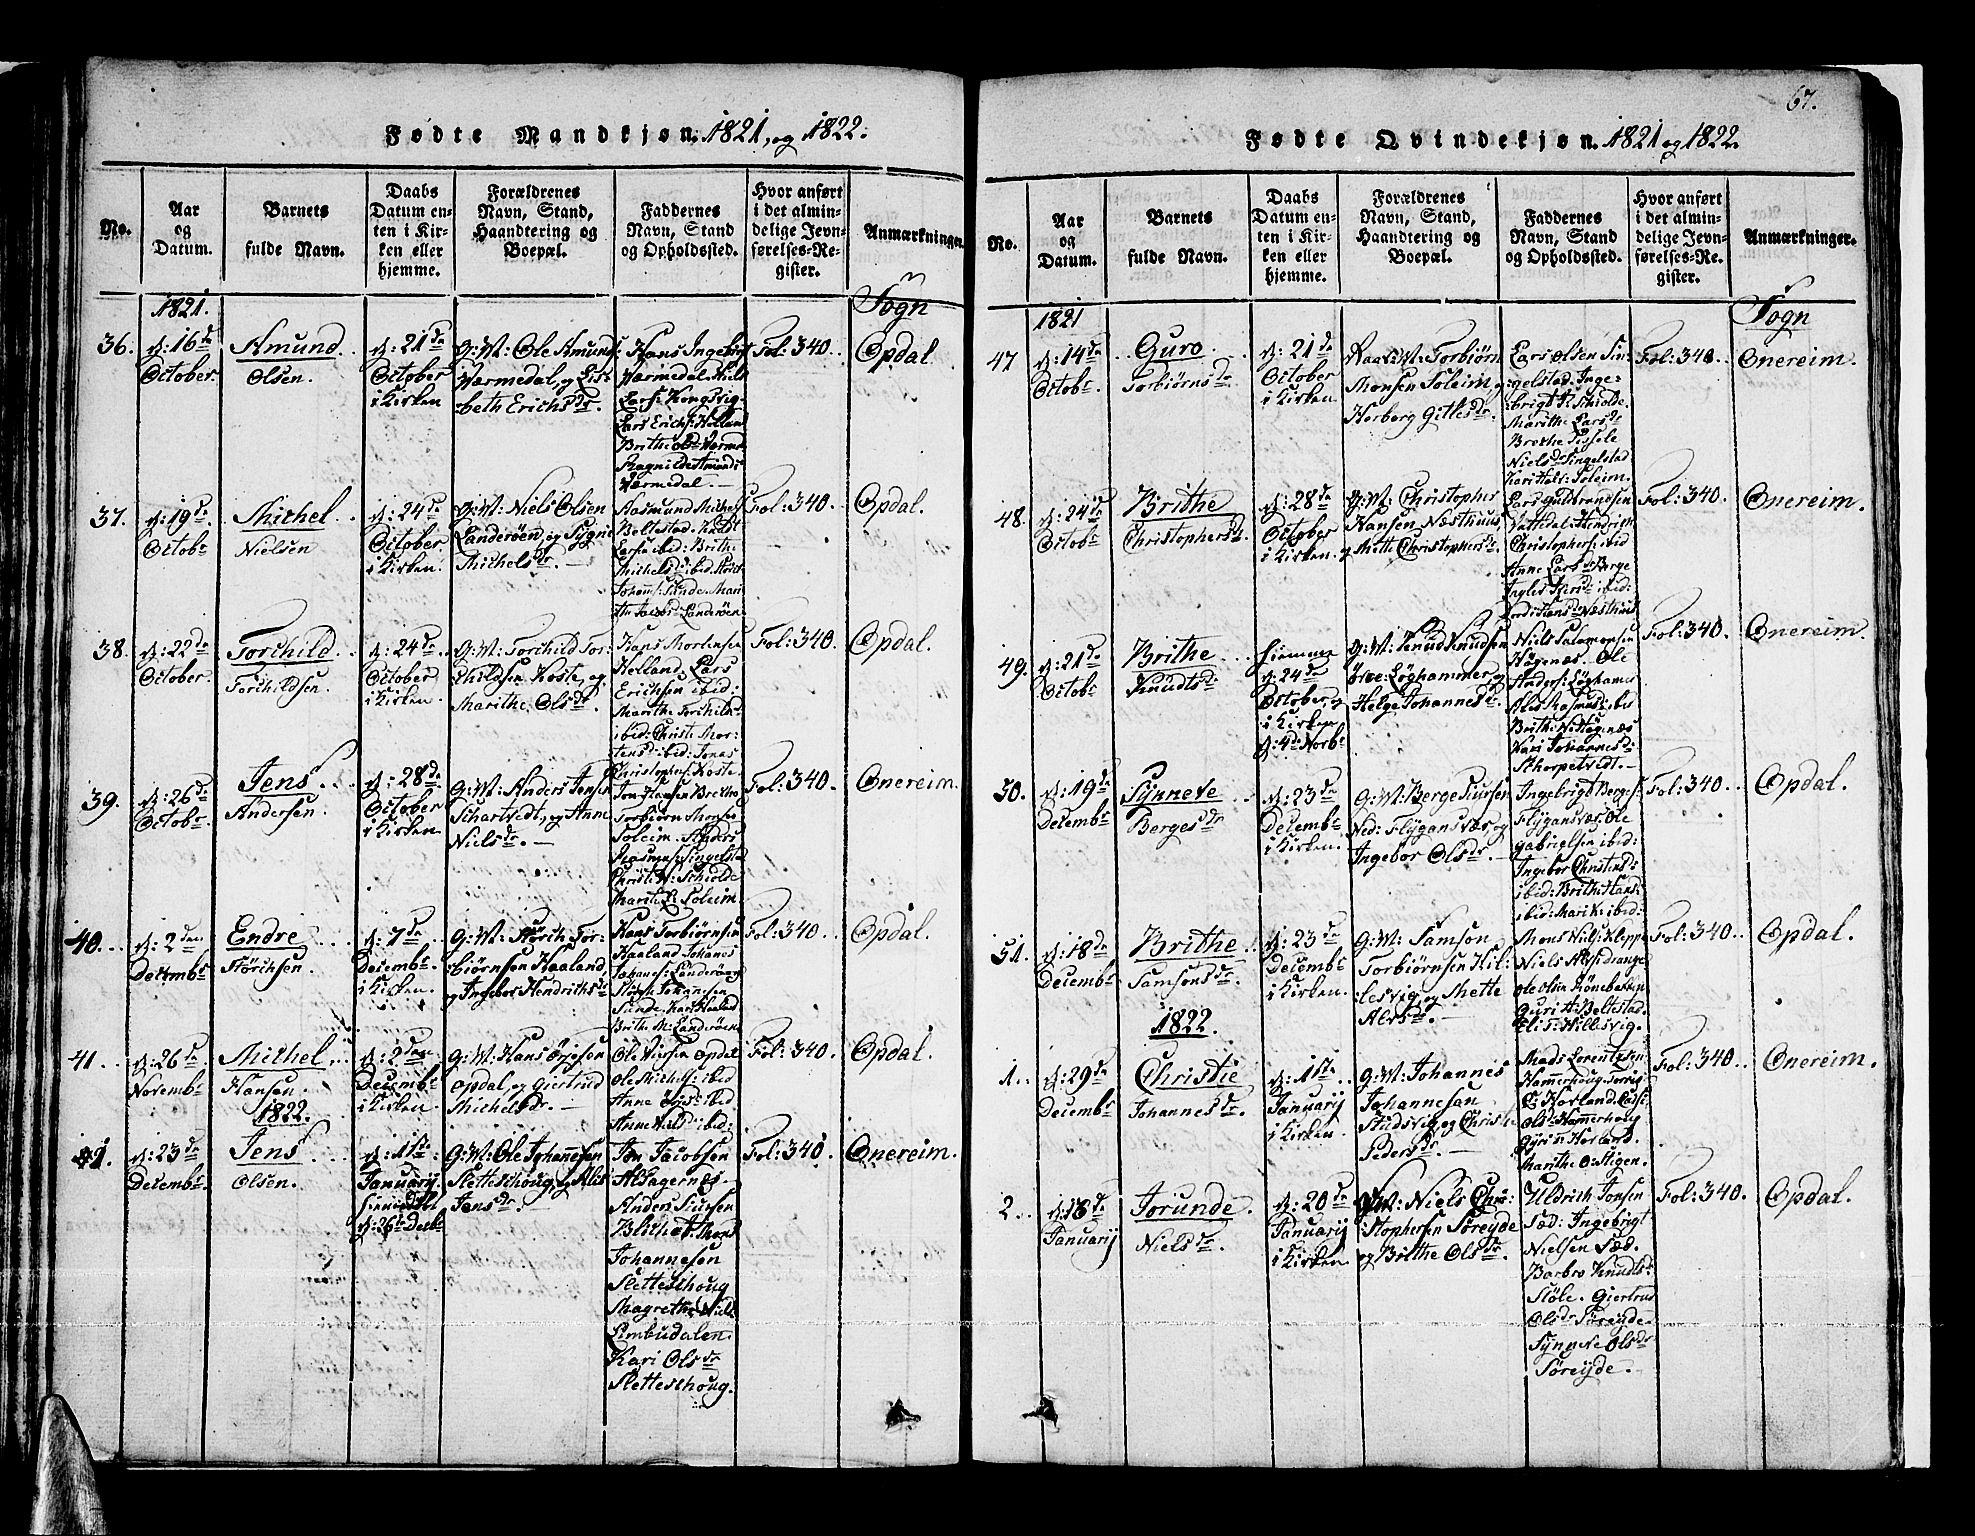 Fødte Mandkjøn. 1821, og 1822.
No.
Aar
og
Datum.
Barnets
fulde Navn.
Daabs
Datum en-
ten i Kir-
ken eller
hjemme.
Forældrenes
Navn, Stand,
Haandtering og
Boepæl.
Faddernes
Navn, Stand
og Opholdssted.
Hvor anført
i det almin-
delige Jevn-
førelses-Re-
gister.
Anmærkninger.
1821.
Sogn
36.
d: 16de
October.
Amund
Olsen.
d: 21de
October
i Kirken
G: M: Ole Amunds:
Wærmedal, og Lis-
beth Erichsdr.
Hans Ingebrigt
Wærmedal. Niels
Lars: Kongsvig.
Lars Erichs: Helland
Brithe Olsd: Wærme
Ragnilde Amunds
Wærmedal.
Fol: 340.
Opdal.
37.
d: 19de
Octobr
Michel
Nielsen
d: 24de
October
i Kirken.
G: M: Niels Olsen
Landerøen, og Sygni
Michelsdr.
Rasmund Michels
Beltestad. Knudt
Larsen ibid: Brithe
Michelsd: ibid.
Johans: Sunde. Mari
the Jacobsd: Landerøen
Fol: 340
Opdal.
38.
d: 22de
October
Torchild
Torchildsen.
d: 24de
October
i Kirken.
G: M: Torchild Tor-
childsen Koste, og
Marithe Olsdr.
Hans Mortensen
Helland. Lars
Erichsen ibid:
Marithe Torchilds:
ibid: Christi Mor-
tensd: ibid: Jonas
Christophers: Koste
Fol: 340
Opdal.
39.
d: 26de
Octobr
Jens
Andersen
d: 28de
October
i Kirken
G: M: Anders Jensen
Schartvedt, og Anne
Nielsdr.
Jon Hansen Brethe
Torbiørn Monsen
Soleim.
Rasmus: Singelsta
Christi N: Schiolde
Marithe L: Soleim.
Fol: 340.
Onereim.
40.
d: 2den
Decembr
Endre
Størchsen.
d: 7de
Decembr.
i Kirken.
G: M: Størch Tor-
biørnsen Haaland,
og Ingebor Hendrichsdr
Hans Torbiørnsen
Haaland Johanes
Johanes: Landerøen
Størch Johanesen
Sunde. Kari Haaland
Brithe M: Landerøen
Fol: 340
Opdal.
41.
d: 26de
Novembr
Michel
Hansen.
d: 2den
Decembr
i Kirken.
G: M: Hans Ørjesen
Opdal, og Giertrud
Michelsdr.
Ole Sivrsen Opdal
Ole Michels: ibid
Anne Ørjesd: ibid
Anne Nielsd: ibid:
Fol: 340.
Opdal.
1822.
1.
d: 23de
Decembr.
Jens
Olsen.
d: 1ste
Januarij
hiemedøbt
d: 26de Decbr
G: M: Ole Johannesen
Sletteschoug, og Alis
Jensdr.
Jon Jacobsen
Aldagernes
Anders Siursen
Johannesen
Sletteschoug
Magrethe Niels
Limbudalen.
Kari Olsdr
Sletteschoug.
Fol: 340.
Onereim.
67.
Fødte Qvindekjøn. 1821 og 1822.
No.
Aar
og
Datum.
Barnets
fulde Navn.
Daabs
Datum en-
ten i Kir-
ken eller
hjemme.
Forældrenes
Navn, Stand,
Haandtering og
Boepæl.
Faddernes
Navn, Stand
og Opholdssted.
Hvor anført
i det almin-
delige Jevn-
førelses-Re-
gister.
Anmærkninger.
1821
Sogn
47
d: 14de
Octobr.
Guro
Torbiørnsdr
d: 21de
October
i Kirken
Torbiørn
Monsen Soleim, og
Herborg Gitlesdr.
Lars Olsen Sin-
gelstad. Inge-
brigt R. Schiolde.
Marithe Larsdr
Brethe Sissele
Nielsdr Singelstad
Kari Hals: Soleim.
Fol: 340
Onereim.
48.
d: 24de
Octobr
Brithe
Christophersdr.
d: 28de
October
i Kirken.
G: M: Christopher
Hansen Næsthuus,
og Mette Christophersdr.
Lars Guldbrandsen
Vattedal. Hendrich
Christophers: ibid
Anne Larsdr
Næsthuus
Fol: 340.
Onereim.
49.
d: 21de
Octobr
Brithe
Knudtsdr
hiemme
d: 24de
October, og
i Kirken
d: 4de Novbr
G: M: Knud Knudsen
øvre Løghammer, og
Helge Johannesdr.
Niels Salomonsen
Høgenes. Ole
Anders: Løghamer
Alis Rasmusd: ibid
Brithe N: Høgenæs
Kari Johannesd:
Thorpetvedt.
Fol: 340.
Onereim.
50.
d: 19de
Decembr
Synneve
Bergesdr
d: 23de
Decembr
i Kirken.
G: M: Berge Siursen
Ned: Flygansvær, og
Ingebor Olsdr.
Ingebrigt Berges:
Flygansvær. Ole
Gabrielsen ibid:
Ingebor Christens:
ibid: Brithe Hans:
ibid: Mari K: ibid:
Fol: 340.
Opdal.
51.
d: 18de
Decembr
Brithe
Samsonsdr.
d: 23de
Decembr
i Kirken.
G: M: Samson
Torbiørnsen Hil-
lesvig, og Mette
Alvsdr.
Mons Niels: Kleppe
Niels
Ole Olsen Rønebakken
Guri H: Beltestad.
Eli T: Hillesvig.
Fol: 340.
Opdal.
1822.
1.
d: 29de
Decembr
Christie
Johannesdr.
d: 1ste
Januarij
i Kirken.
G: M: Johannes
Johannesan
Studsvig, og Christi
Pedersdr.
Mads Lorentzsen
Hammerhoug.
E: Horland.
Olsd: Hamerhoug
Gyri N: Horland.
Marithe O: Stigen.
Fol: 340.
Onereim.
2.
d: 18de
Januarij
Jorunde.
Nielsdr.
d: 20de
Januarij
i Kirken
G: M: Niels Chri:
:stophersen Søreyde
og Brithe Olsdr.
Uldrich Jonsen
Sæd: Ingebrigt
Nielsen Sæd.
Barbro Knudts:
Støle. Giertrud
Olsdr Søreyde.
Synneve Olsdr
Søreyde.
Fol: 340.
Opdal.